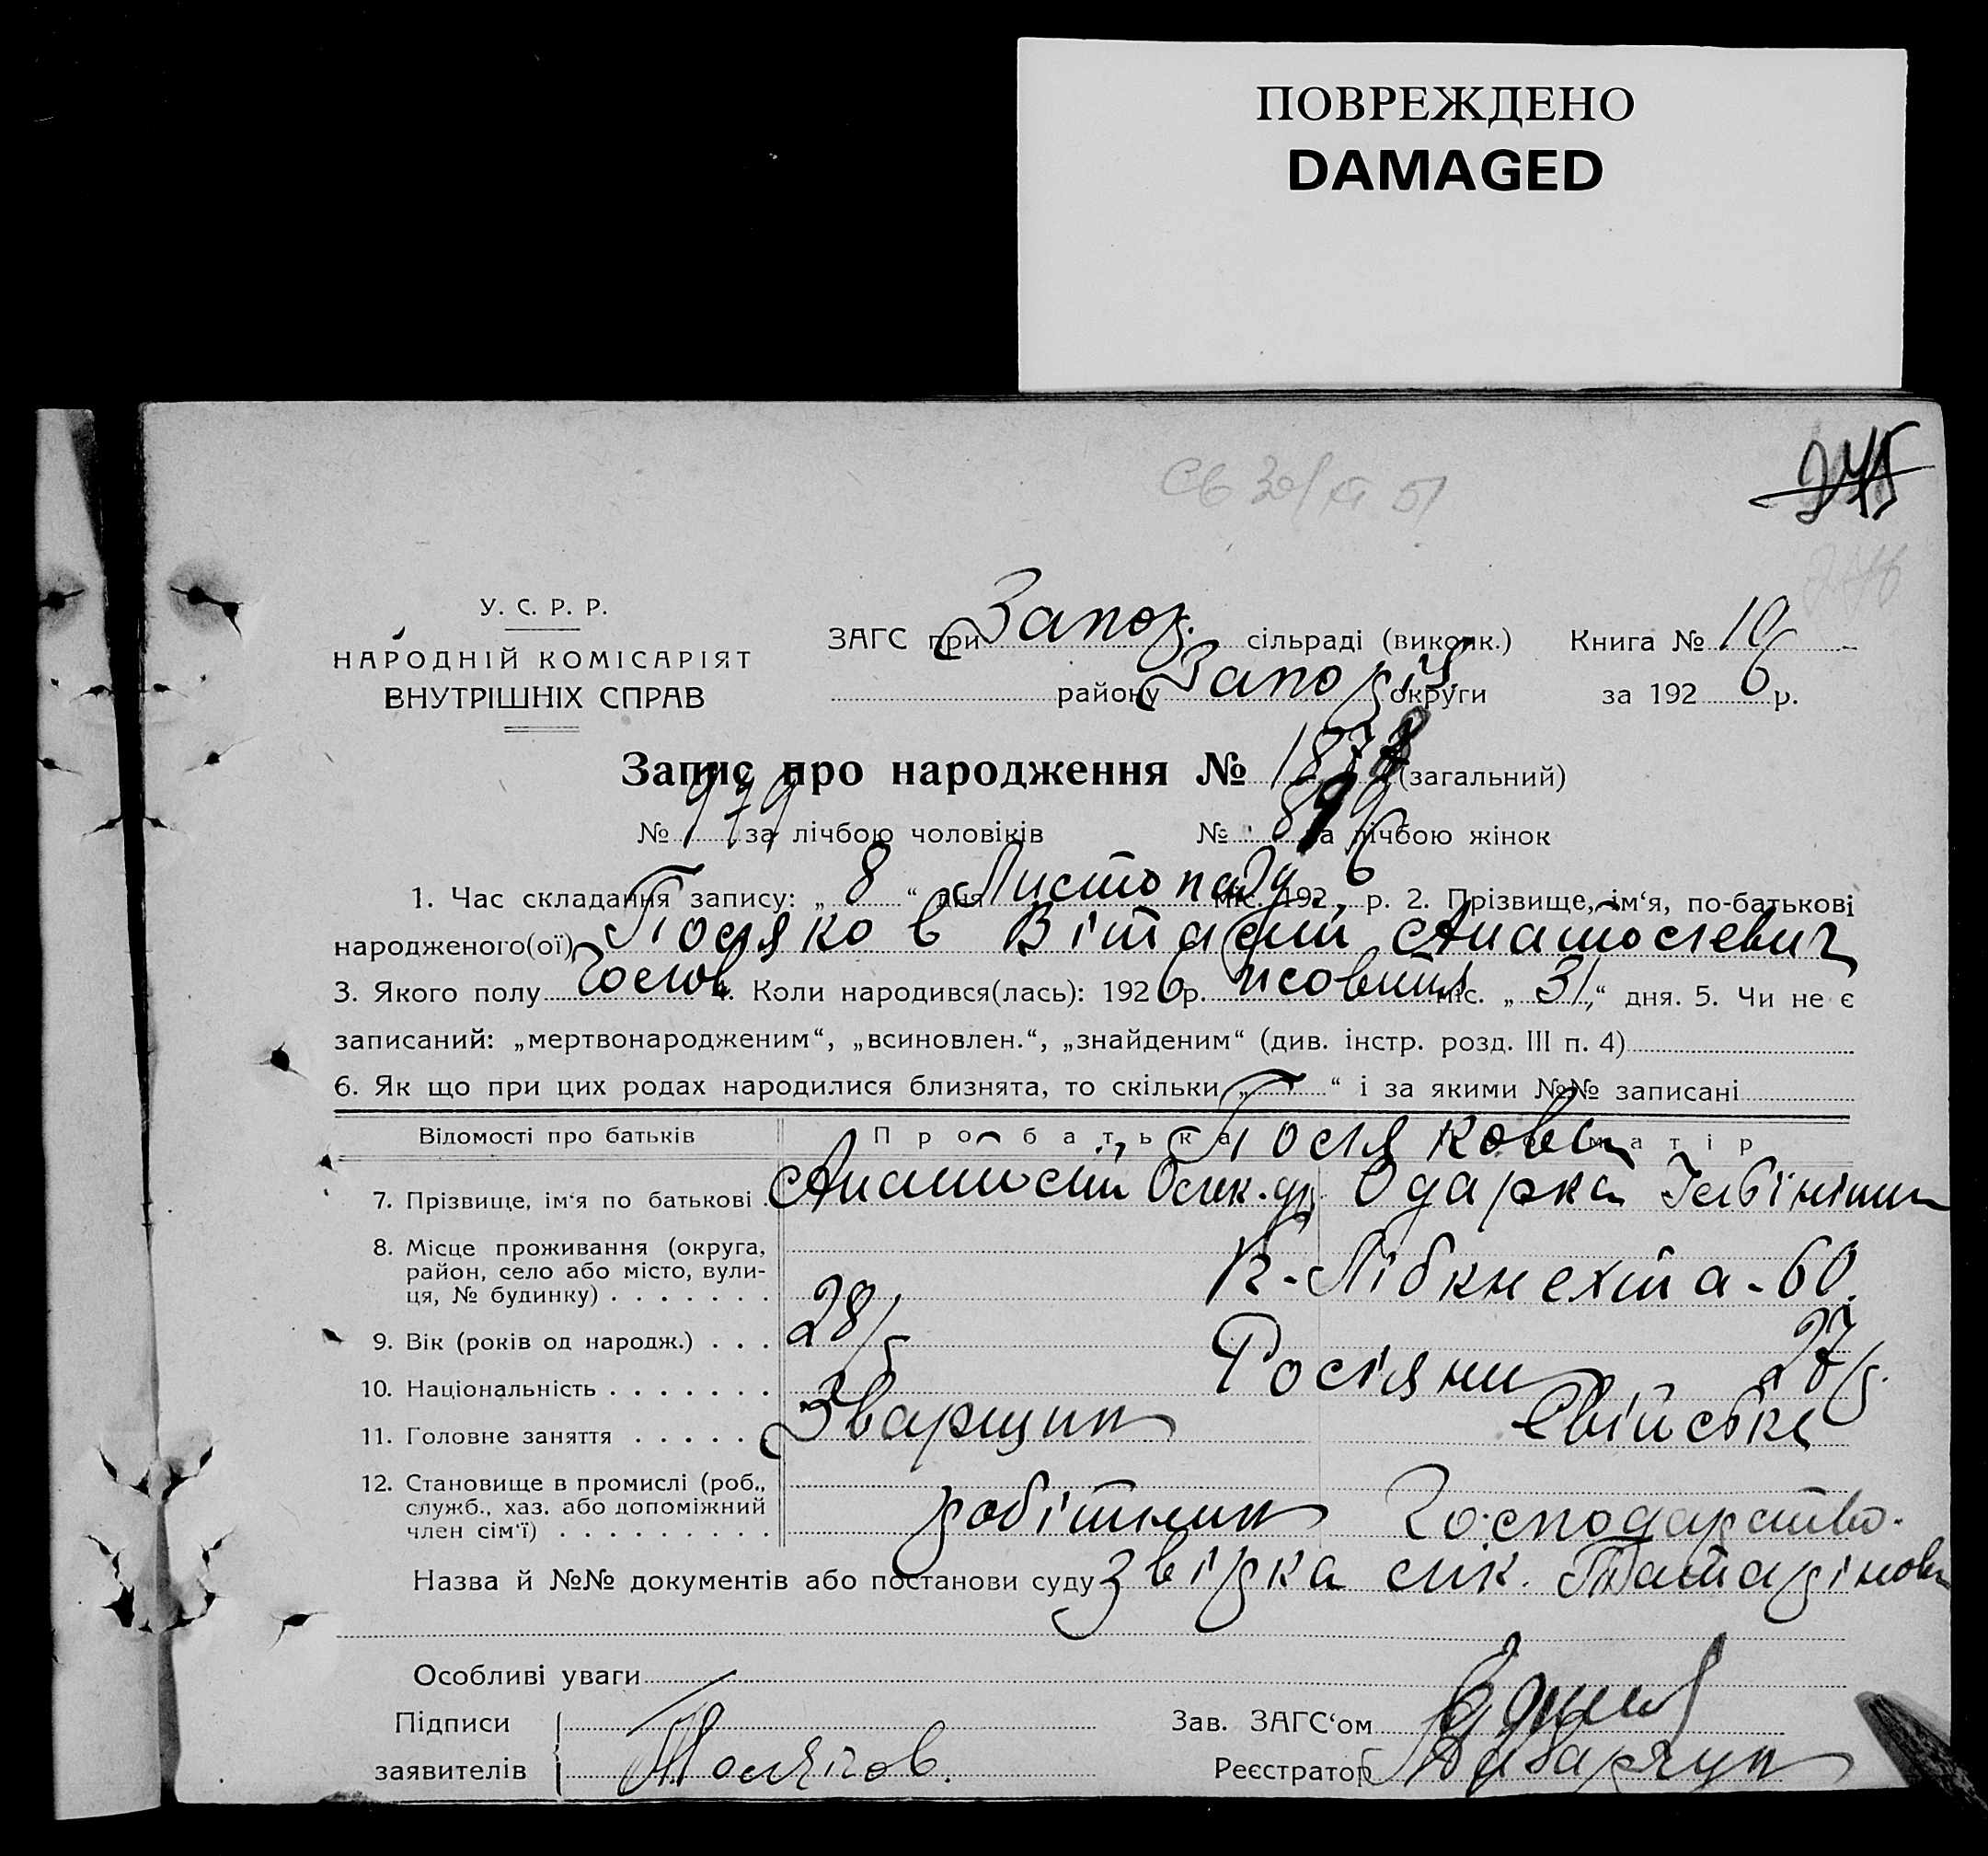 ПОВРЕЖДЕНО
DAMAGED
275
У. С. Р. Р.
НАРОДНІЙ КОМІСАРІЯТ
ВНУТРІШНІХ СПРАВ
ЗАГС при Запор. сільраді (виконк.) Книга № 10
району Запоріз. округи за 1926 р.
Запис про народження № 1873 (загальний)
№ 979 за лічбою чоловіків № за лічбою жінок
1. Час складання запису: „ 8 “ дня Листопаду міс. 1926 р. 2. Прізвище, ім‘я, по-батькові
народженого(ої) Поляков Віталій Анатолієвич
3. Якого полу чолов. 4. Коли народився(лась): 1926 р. жовтня міс. „ 31 “ дня. 5. Чи не є
записаний: „мертвонародженим“, „всиновлен.“, „знайденим“ (див. інстр. розд. III п. 4)
6. Як що при цих родах народилися близнята, то скільки „ “ і за якими №№ записані
Відомості про батьків Про батька Про матір
Полякови
7. Прізвище, ім‘я по батькові . Анатолій Олек.др. Одарка
8. Місце проживання (округа,
район, село або місто, вули-
ця, № будинку) . . . . . . . К-Лібкнехта-60.
9. Вік (років од народж.) . . . 28 27
10. Національність . . . . . . . Росіяни
11. Головне заняття . . . . . . Зварщик Свійське
12. Становище в промислі (роб.,
служб., хаз. або допоміжний
член сім‘ї) . . . . . . . . . робітник Господарство.
Назва й №№ документів або постанови суду звірка лік. Татарінови
Особливі уваги
Підписи
заявителів Поляков.
Зав. ЗАГС‘ом
Реєстратор